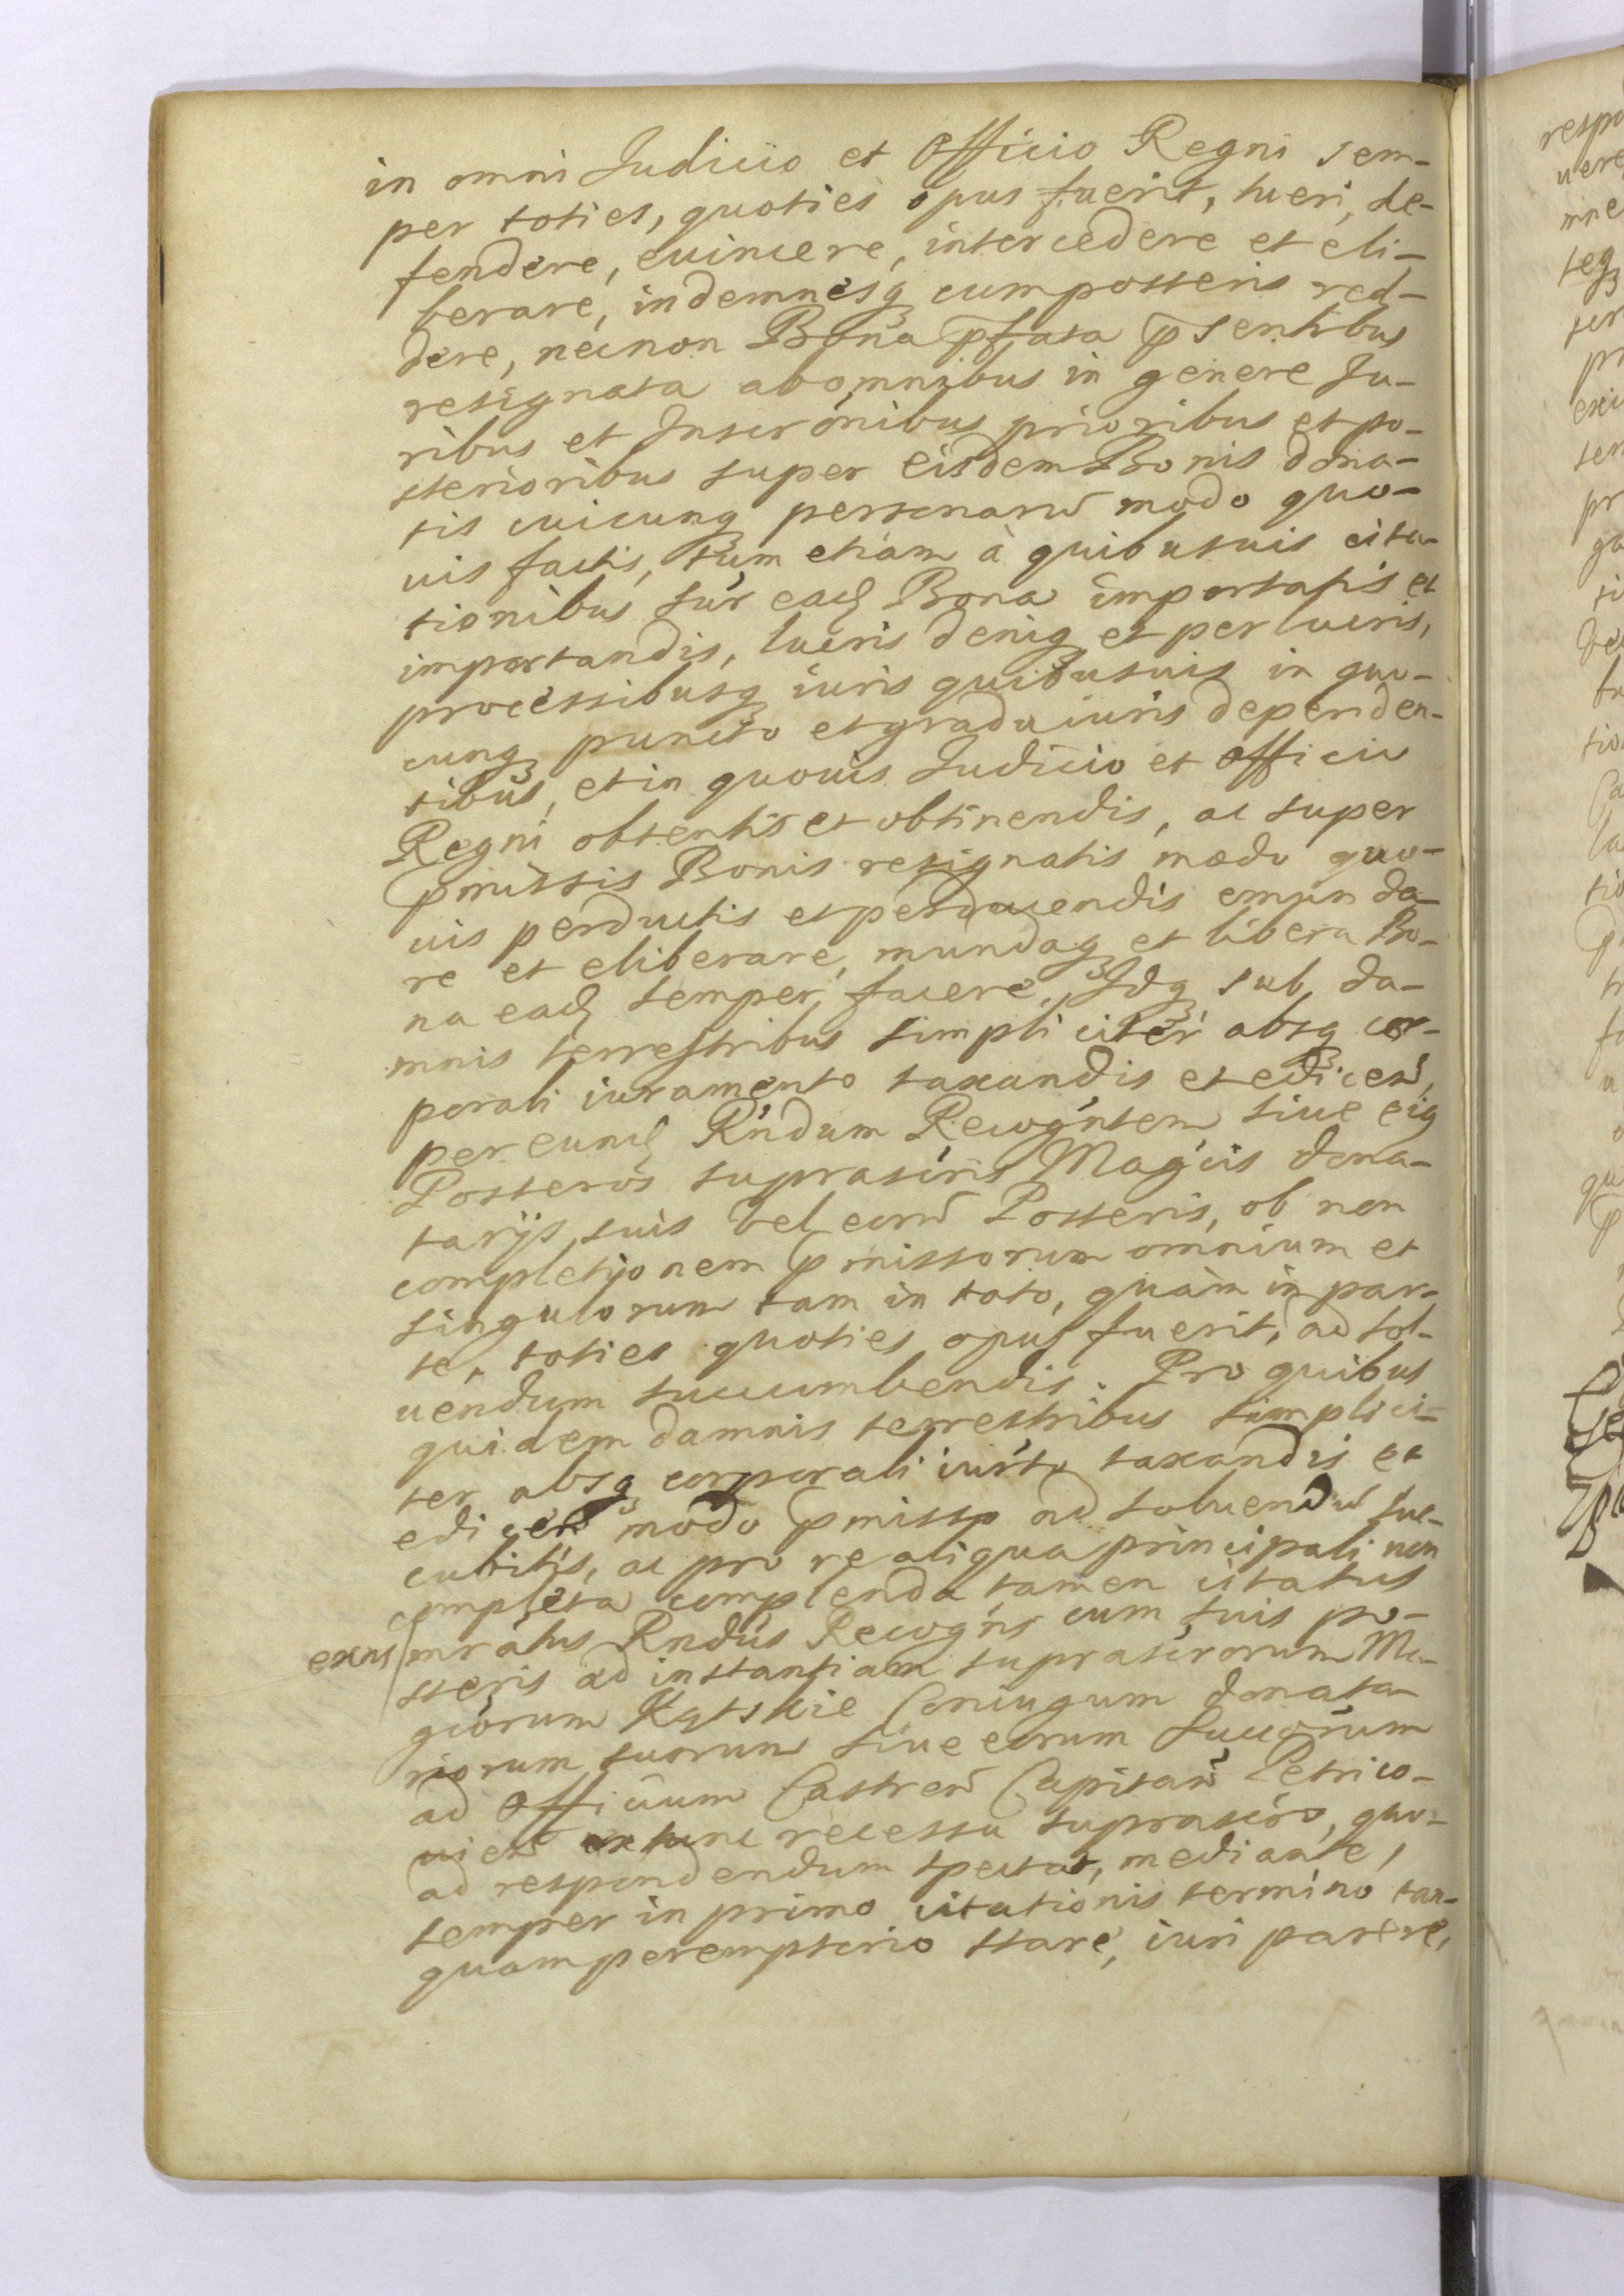 in omni Judicio et Officio Regni sem-
per toties, quoties opus fuerit, tueri, de-
fendere, euincere, intercedere et eli-
berare, indemnesq cum posteris red-
dere, necnon Bona pfata psentibus
resignata ab omnibus in genere Ju-
ribus et Inscrönibus prioribus et po-
sterioribus super eisdem Bonis dona-
tis cuicunq personarū modo quo-
uis factis, tum etiam à quibusuis cita-
tionibus sur ead Bona importatis et
importandis, lucris deniq et perlucris,
processibusq iuris quibusuis in quo-
cunq puncto et gradu iuris dependen-
tibus, et in quouis Judicio et Officio
Regni obtentis et obtinendis, ac super
pmissis Bonis resignatis modo quo-
uis perductis et perducendis emunda-
re et eliberare, mundaq et libera Bo-
na ead semper facere. Idq sub da-
mnis terrestribus simpliciter absq cor-
porali iuramento taxandis et edicen,
per eund Rndum Recogntem siue eiq
Posteros suprascris Magcis dona-
tarijs suis vel eorū Posteris, ob non
completionem pmissorum omnium et
singulorum tam in toto, quàm in par-
te, toties quoties opus fuerit, ad sol-
uendum succumbendis. Pro quibus
quidem damnis terrestribus simplici-
ter absq corporali iurto taxandis et
edicen modo pmisso ad soluendū suc-
cubitis, ac pro re aliqua principali non
completa complenda tamen citatus
exns / mratus Rndus Recogns cum suis po-
steris ad instantiam suprascrorum Ma-
gcorum Kątskie Coniugum donata-
riorum suorum siue eorum Succorum
ad Officium Castren Capitan Petrico-
uien ex tunc recessu suprascro, quo-
ad respondendum spectat, mediante,
semper in primo citationis termino tan-
quam peremptorio stare, iuri parere,